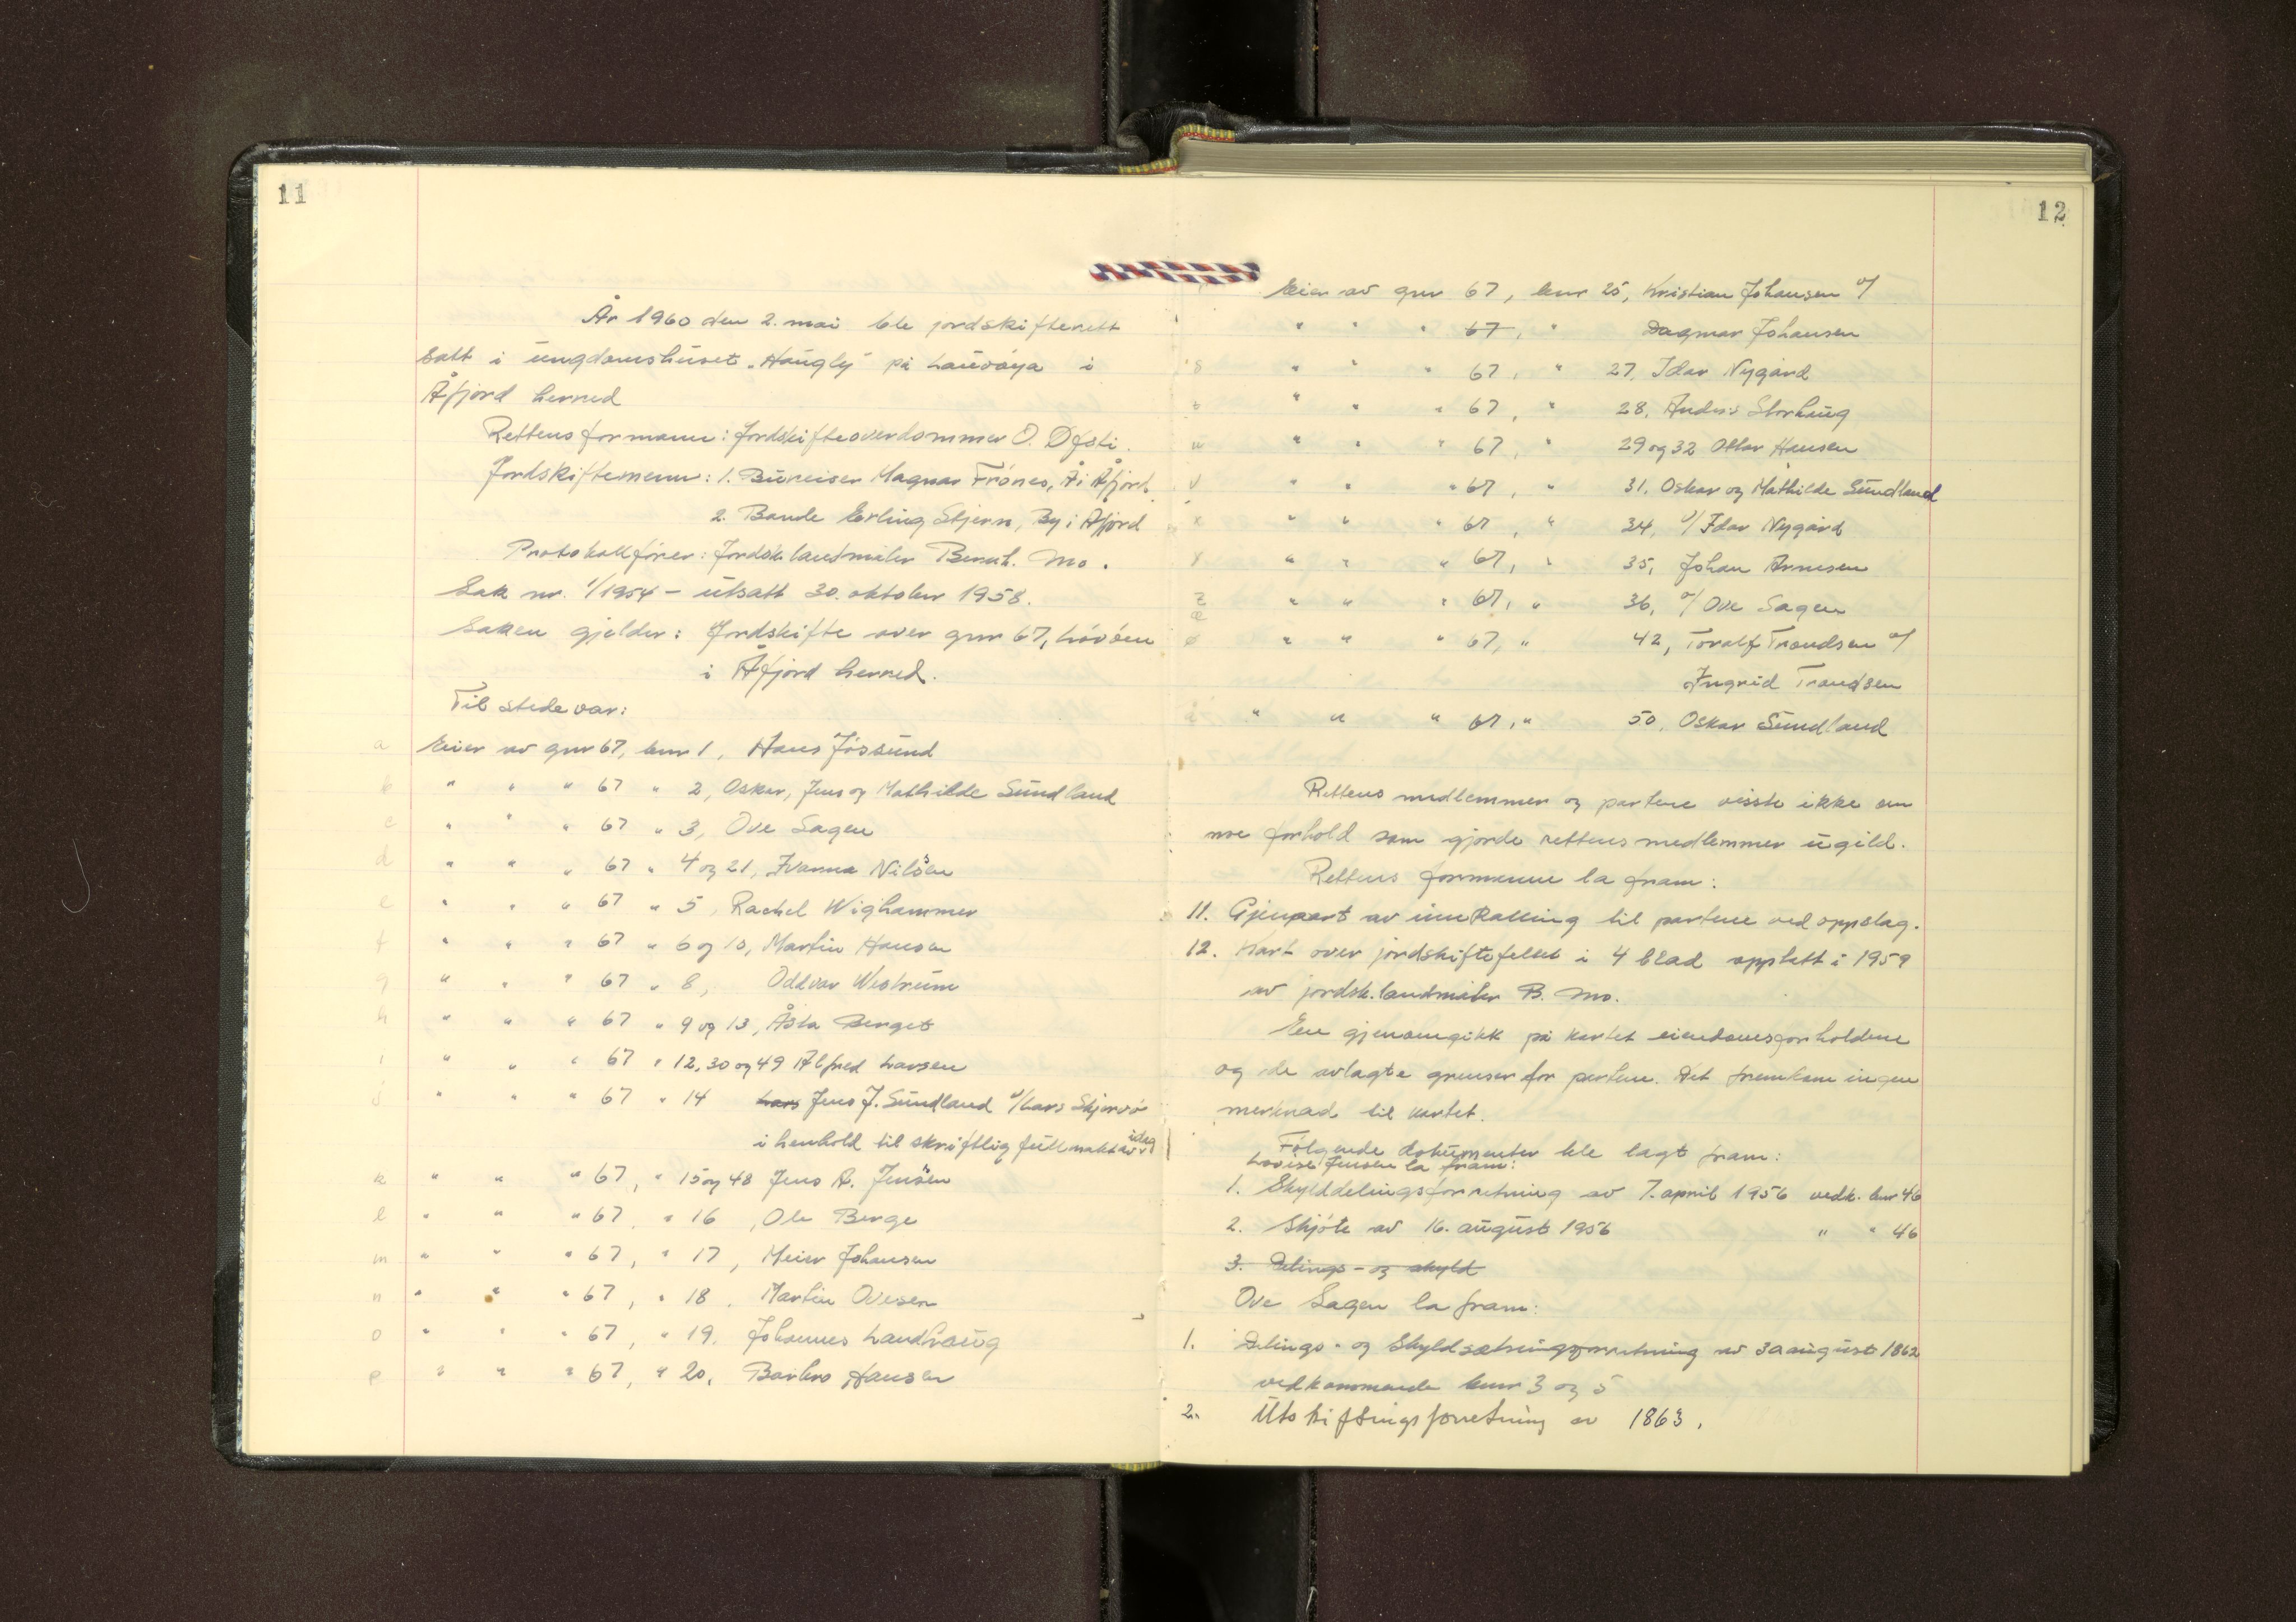 11
År 1960 den 2. mai ble jordskifterett
satt i ungdomshuset "Haugly" på Lauvøya i
Åfjord herred
Rettens formann: Jordskifteoverdommer O. Døsti.
Jordskiftemenn: 1. Bureiser Magnar Frönes, Å i Åfjord.
2. Bonde Erling Stjern, By i Åfjord
Protokollfører: Jordsk.landmåler Bernh. Mo.
Sak nr. 1/1954 – utsatt 30. oktober 1958.
Saken gjelder: Jordskifte over gnr 67, Lövöen
i Åfjord herred.
Til stede var:
a Eier av gnr 67, bnr 1, Hans Jössund
b " " " 67 " 2, Oskar, Jens og Mathilde Sundland
c " " " 67 " 3, Ove Sagen
d " " " 67 " 4 og 21, Ivanna Nilsen
e " " " 67 " 5, Rachel Wighammer
f " " " 67 " 6 og 10, Martin Hansen
g " " " 67 " 8, Oddvar Westrum
h " " " 67 " 9 og 13, Åsta Berget
i " " " 67 " 12, 30 og 49 Alfred Larsen
j " " " 67 " 14 Lars Jens J. Sundland f/Lars Skjervö
i henhold til skriftlig fullmakt av idag
k " " " 67, " 15 og 48 Jens A. Jensen
l " " " 67, " 16, Ole Berge
m " " " 67, " 17, Meier Johansen
n " " " 67, " 18, Martin Ovesen
o " " " 67, " 19, Johannes Landhaug
p " " " 67, " 20, Barbro Hansen
12
Eier av gnr 67, bnr 25, Kristian Johansen v/
" " " 67, " Dagmar Johansen
s " " " 67, " 27, Idar Nygård
t " " " 67, " 28, Anders Storhaug
u " " " 67, " 29 og 32 Ottar Hansen
v " " " 67, " 31, Oskar og Mathilde Sundland
x " " " 67, " 34, v/Idar Nygård
y " " " 67, " 35, Johan Arnesen
z " " " 67, " 36, v/Ove Sagen
æ
ø " " " 67, " 42, Toralf Trondsen v/
Ingrid Trondsen
å " " " 67, " 50, Oskar Sundland
Rettens medlemmer og partene visste ikke om
noe forhold som gjorde rettens medlemmer ugild.
Rettens formann la fram:
11. Gjenpart av innkalling til partene ved oppslag.
12. Kart over jordskiftefeltet i 4 blad opptatt i 1959
av jordsk.landmåler B. Mo.
En gjennomgikk på kartet eiendomsforholdene
og de avlagte grenser for partene. Det fremkom ingen
merknad til kartet.
Følgende dokumenter ble lagt fram:
Lovise Jensen la fram:
1. Skylddelingsforretning av 7. april 1956 vedk. bnr 46
2. Skjöte av 16. august 1956 " " 46
3. Delings- og skyld
Ove Sagen la fram:
1. Delings- og Skyldsetningsforretning av 30 august 1862
vedkommende bnr 3 og 5
2. Utskiftingsforretning av 1863.